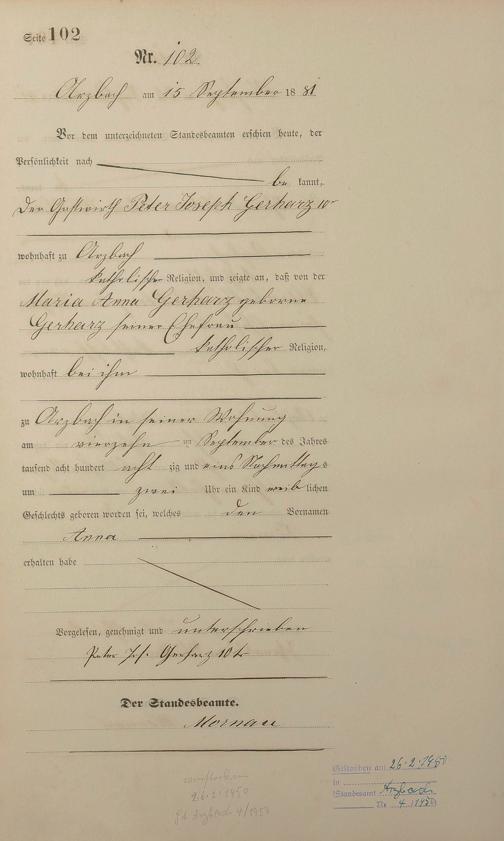 Seite 102
Nr. 102.
Arzbach am 15 September 1881
Vor dem unterzeichneten Standesbeamten erschien heute, der
Persönlichkeit nach
be kannt,
der Gastwirth Peter Joseph Gerharz 10r
wohnhaft zu Arzbach
katholischer Religion, und zeigte an, daß von der
Maria Anna Gerharz geborene
Gerharz seiner Ehefrau
katholischer Religion,
wohnhaft bei ihm
zu Arzbach in seiner Wohnung
am vierzehn ten September des Jahres
tausend acht hundert acht zig und eins Nachmittags
um zwei Uhr ein Kind weib lichen
Geschlechts geboren worden sei, welches den Vornamen
Anna
erhalten habe
Vorgelesen, genehmigt und unterschrieben
Peter Jos. Gerharz 10tr
Der Standesbeamte.
Mornau
verstorben
26.2.1950
Arzbach 4/1950
Gestorben am 26.2.1950
in
Standesamt Arzbach
Nr 4 (1950)